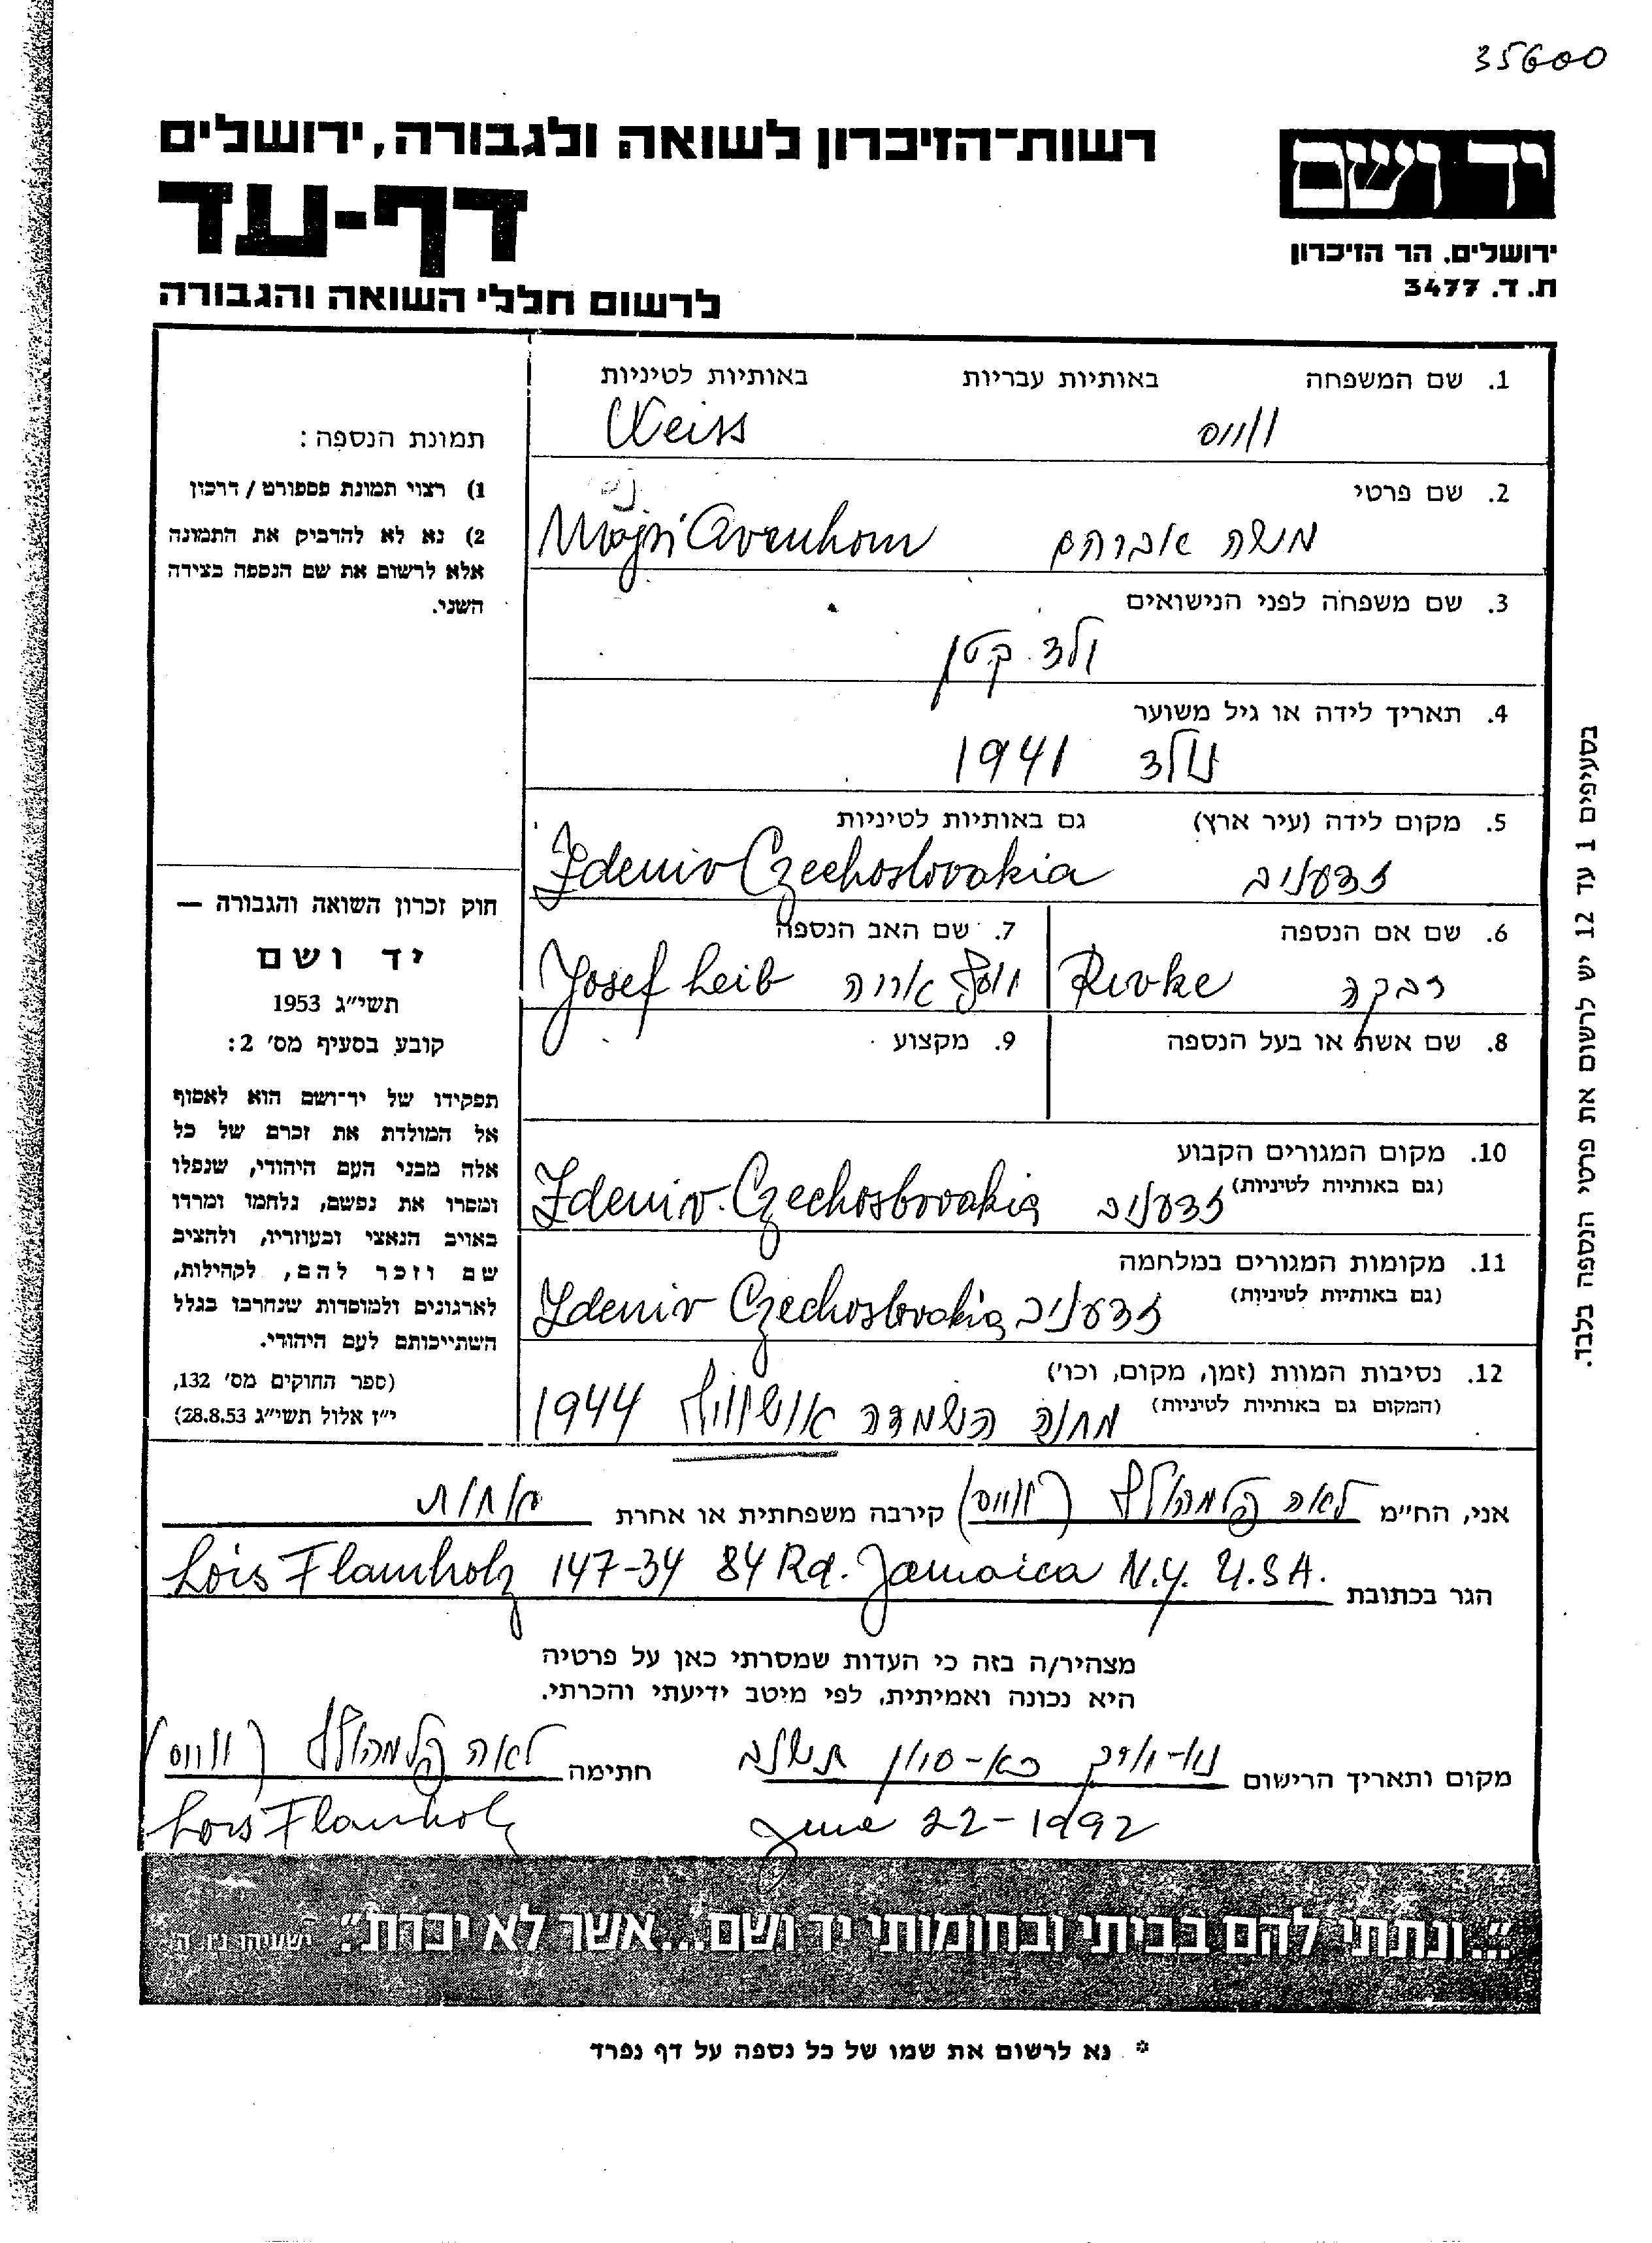 35600
רשות־הזיכרון לשואה ולגבורה, ירושלים
דף-עד
לרשום חללי השואה והגבורה
יד ושם
ירושלים. הר הזיכרון
ת. ד. 3477
1. שם המשפחה באותיות עבריות באותיות לטיניות
ווייס Weiss
2. שם פרטי
משה אברהם Avruhom
3. שם משפחה לפני הנישואים
ילד קטן
4. תאריך לידה או גיל משוער
נולד 1941
5. מקום לידה (עיר ארץ) גם באותיות לטיניות
זדעניב Zdeniv Czechoslovakia
6. שם אם הנספה
רבקה Rivke
7. שם האב הנספה
יוסף אריה Josef Leib
8. שם אשת או בעל הנספה
9. מקצוע
10. מקום המגורים הקבוע
(גם באותיות לטיניות)
זדעניב Zdeniv. Czechoslovakia
11. מקומות המגורים במלחמה
(גם באותיות לטיניות)
זדעניב Zdeniv Czechoslovakia
12. נסיבות המוות (זמן, מקום, וכו')
(המקום גם באותיות לטיניות)
מחנה השמדה אושוויץ 1944
תמונת הנספה:
1) רצוי תמונת פספורט / דרכון
2) נא לא להדביק את התמונה
אלא לרשום את שם הנספה בצידה
השני.
חוק זכרון השואה והגבורה —
יד ושם
תשי״ג 1953
קובע בסעיף מס' 2:
תפקידו של יד־ושם הוא לאסוף
אל המולדת את זכרם של כל
אלה מבני העם היהודי, שנפלו
ומסרו את נפשם, נלחמו ומרדו
באויב הנאצי ובעוזריו, ולהציב
שם וזכר להם, לקהילות,
לארגונים ולמוסדות שנחרבו בגלל
השתייכותם לעם היהודי.
(ספר החוקים מס' 132,
י״ז אלול תשי״ג 28.8.53)
בסעיפים 1 עד 12 יש לרשום את פרטי הנספה בלבד.
אני, הח״מ לאה פלמהולץ (ווייס) קירבה משפחתית או אחרת אחות
הגר בכתובת Lois Flamholz 147-34 84 Rd. Jamaica N.Y. U.S.A.
מצהיר/ה בזה כי העדות שמסרתי כאן על פרטיה
היא נכונה ואמיתית, לפי מיטב ידיעתי והכרתי.
מקום ותאריך הרישום נוא-יורק כא-סיון תשנב חתימה לאה פלמהולץ (ווייס)
June 22-1992 Lois Flamholz
״...ונתתי להם בביתי ובחומותי יד ושם...אשר לא יכרת״. ישעיהו נו, ה.
* נא לרשום את שמו של כל נספה על דף נפרד